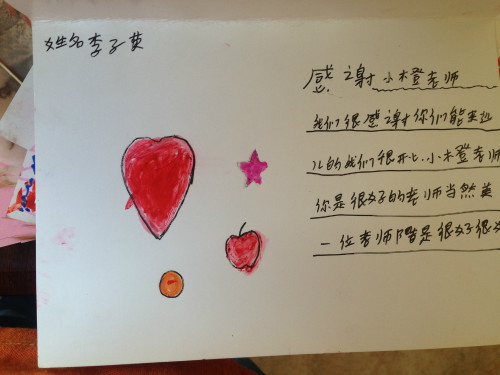 姓名李子英
感谢小橙老师
我们很感谢你们能来这
儿的我们很开心小橙老师
你是很好的老师当然美
一位老师都是很好很好